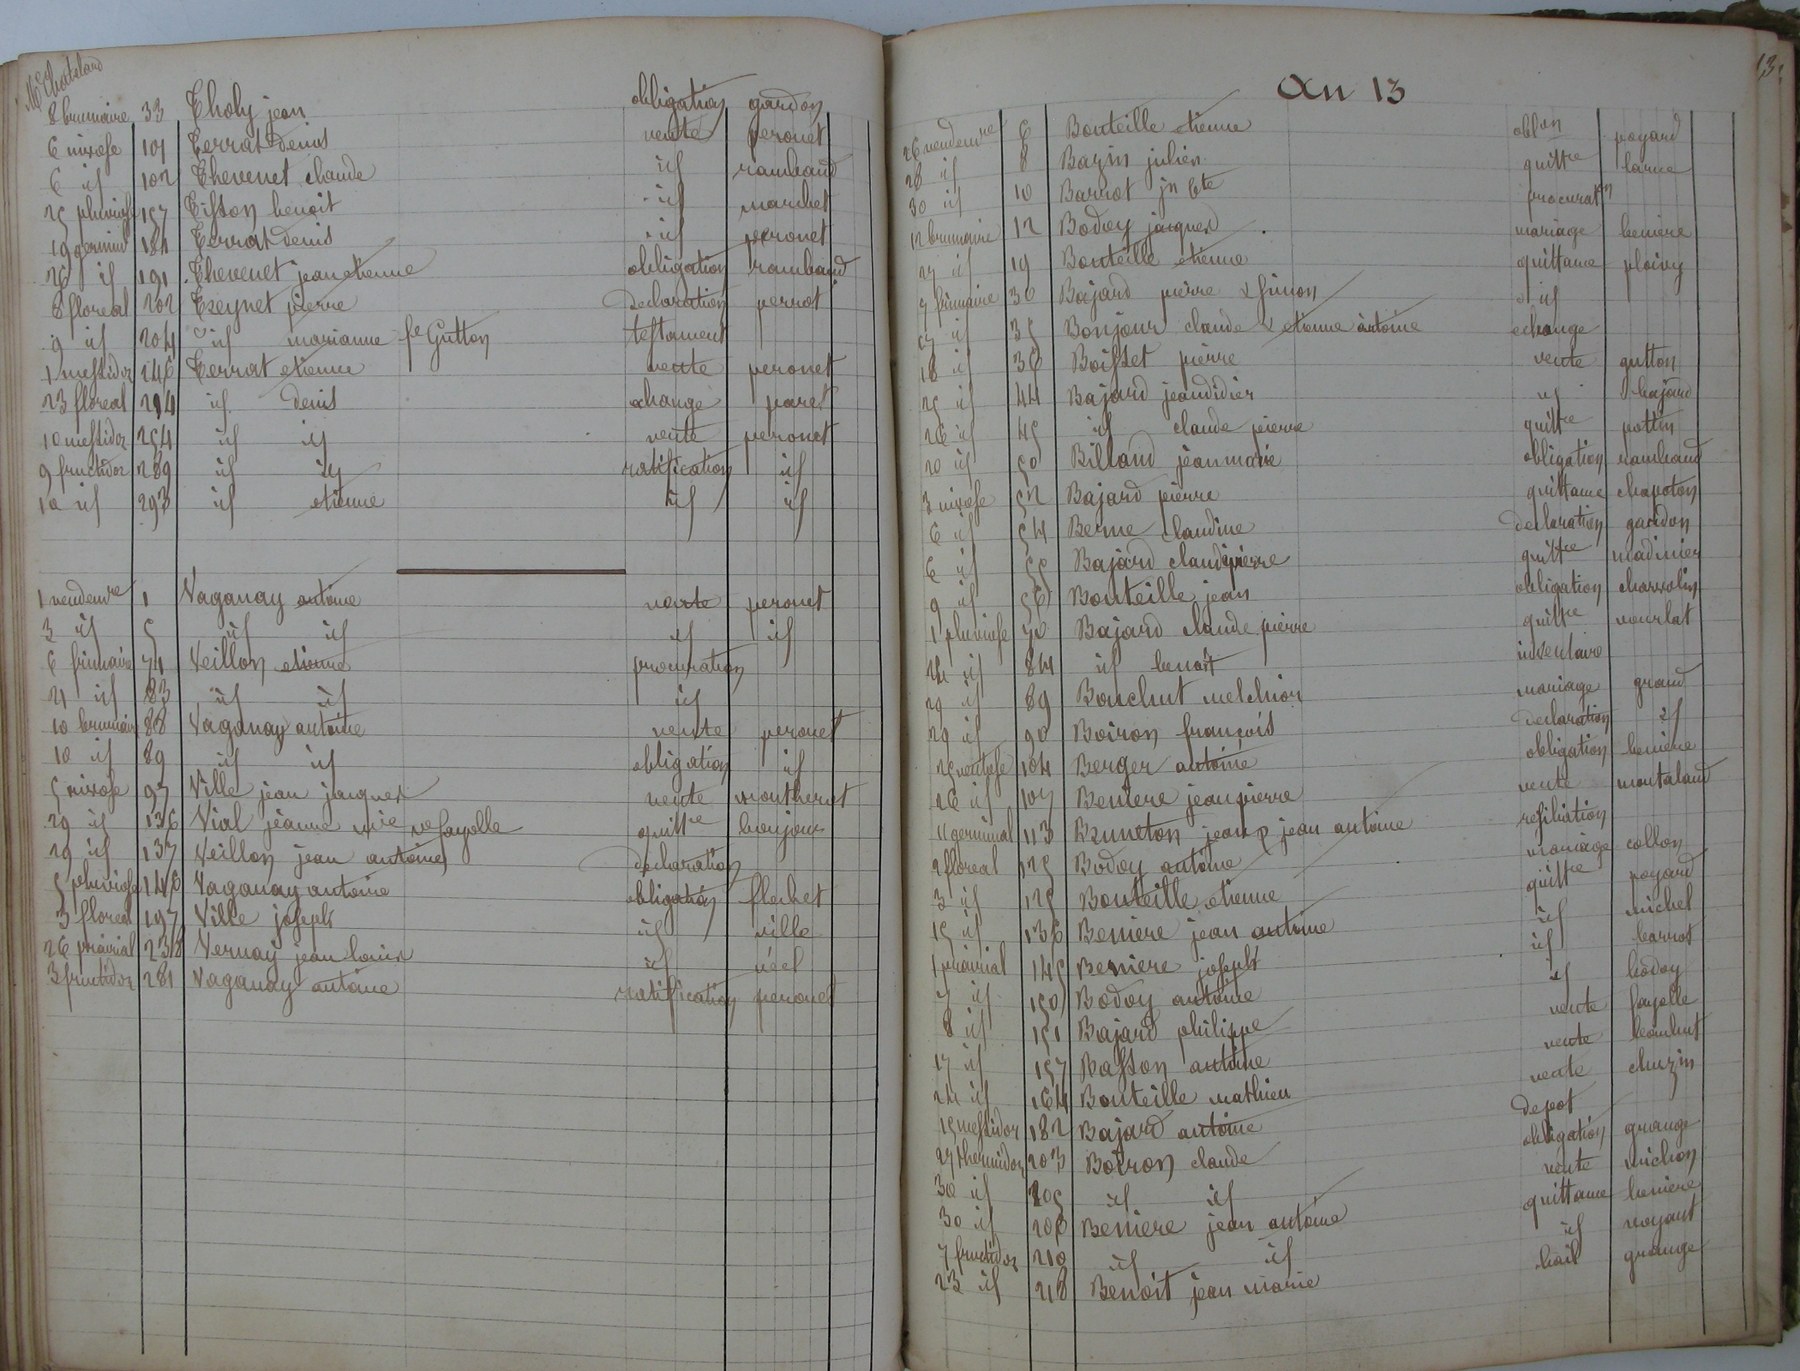 Me Chatelard
8 brumaire 33 Tholy jean obligation gardon
6 nivose 101 Terrat denis vente peronet
6 id 102 Thevenet claude id rambaud
25 pluviose 157 Tisson benoit id marchet
19 germinal 184 Terrat denis id peronet
26 id 191 Thevenet jean etienne obligation rambaud
8 floreal 202 Tzeynet pierre declaration perrot
9 id 204 id marianne fe Gutton testament
1 messidor 246 Terrat etienne vente peronet
23 floreal 214 id denis echange paret
10 messidor 254 id id vente peronet
9 fructidor 289 id id ratification id
10 id 293 id etienne id id
1 vendemre 1 Vaganay antoine vente peronet
3 id 5 id id id id
6 frimaire 74 Veillon etienne procuration
21 id 83 id id id
10 brumaire 88 Vaganay antoine vente peronet
10 id 89 id id obligation id
5 nivose 97 Ville jean jacques vente montheret
29 id 136 Vial jeanne mie ve fayolle quittce bonjour
29 id 137 Veillon jean antoine declaration
5 pluviose 146 Vaganay antoine obligation flechet
3 floreal 197 Ville joseph id ville
26 prairial 238 Vernay jean louis id néel
3 fructidor 281 Vaganay antoine ratification peronet
An 13
13
26 vendemre 6 Bouteille etienne oblon poyard
28 id 8 Bazin julien quittce larue
30 id 10 Barrot jn Bte procuratn
12 brumaire 12 Bodoy jacques mariage beniere
27 id 19 Bouteille etienne quittance ploivy
7 frimaire 30 Bajard pierre & simon id
id 35 Bonjour claude & etienne antoine echange
18 id 38 Boisset pierre vente gutton
25 id 44 Bajard jean didier id bajard
26 id 45 id claude pierre quittce pottin
20 id 50 Billand jean marie obligation rambaud
3 nivose 52 Bajard pierre quittance chapoton
6 id 54 Berne claudine declaration gardon
6 id 55 Bajard claude pierre quittce madinier
9 id 56 Bouteille jean obligation charvolin
1 pluviose 70 Bajard claude pierre quittce vourlat
24 id 84 id benoit inventaire
29 id 89 Bouchut melchior mariage grand
29 id 90 Boiron françois declaration id
25 ventose 104 Berger antoine obligation beniere
26 id 107 Beniere jean pierre vente montaland
11 germinal 113 Bruneton jean p jean antoine resiliation
2 floreal 125 Bodoy antoine mariage collon
3 id 125 Bouteille etienne quittce poyard
15 id 136 Beniere jean antoine id michel
1 prairial 145 Beniere joseph id barrot
7 id 150 Bodoy antoine id bodoy
8 id 151 Bajard philippe vente fayolle
17 id 157 Basson antoine vente bouchut
24 id 164 Bouteille mathieu vente chuzin
15 messidor 182 Bajard antoine depot
27 thermidor 203 Boiron claude obligation grange
30 id 205 id id vente michon
30 id 206 Beniere jean antoine quittance beniere
7 fructidor 210 id id id noyant
23 id 218 Benoit jean marie bail grange